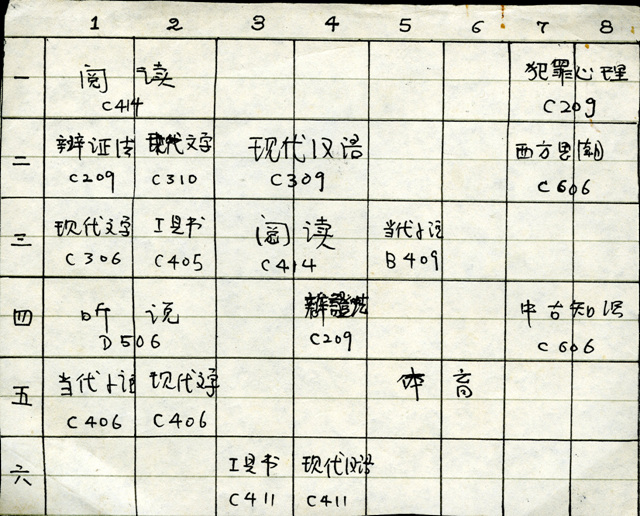 1 2 3 4 5 6 7 8
一 阅读 犯罪心理
C414 C209
二 辩证法 现代文学 现代汉语 西方思潮
C209 C310 C309 C606
三 现代文学 工具书 阅读 当代
C306 C405 C414 B409
四 听说 辩證法 中古知识
D506 C209 C606
五 当代 现代文学 体育
C406 C406
六 工具书 现代汉语
C411 C411